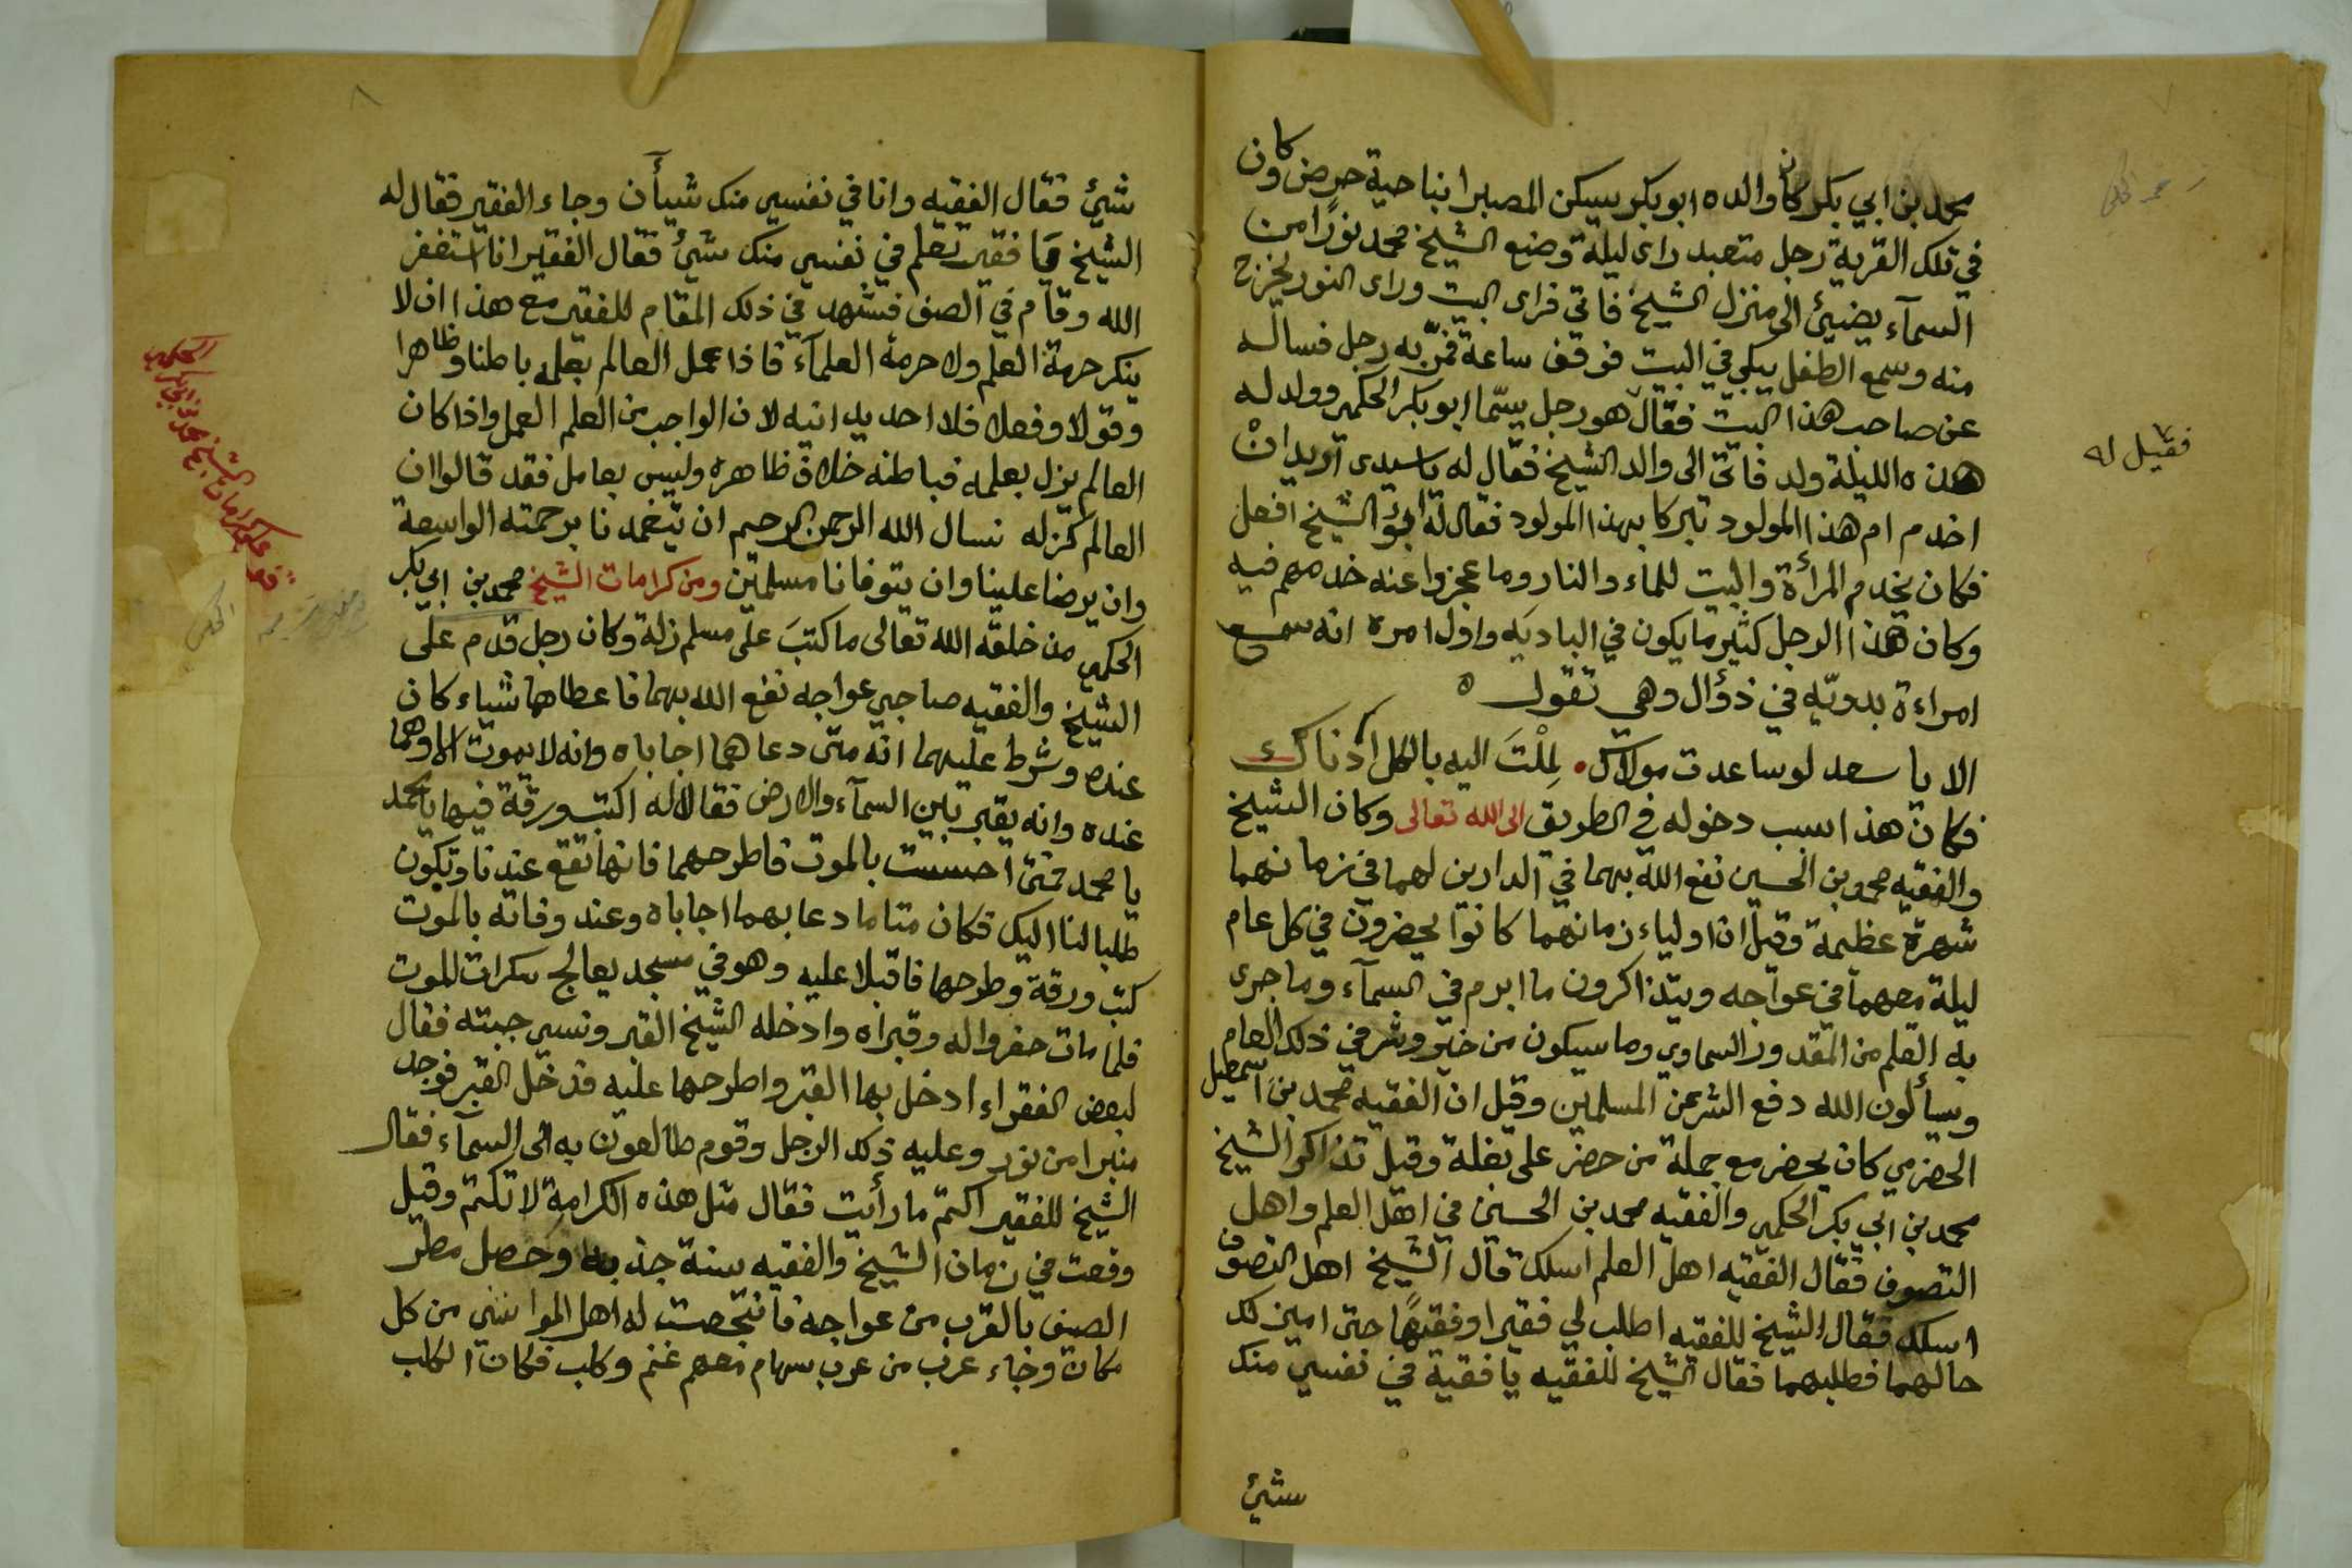 محمد بن ابي بكر كان والده ابو بكر يسكن المصبرا بناحية حرض وكان
في تلك القرية رجل متعبد راى ليلة وضع الشيخ محمد نورًا من
السمآء يضيئ الى منزل الشيخ فاتى فراى البيت وراى النور يخرج
منه وسمع الطفل يبكي في البيت فوقف ساعة فمرّ به رجل فساله
عن صاحب هذا البيت فقال هو رجل يسّما ابو بكر الحكمي وولد له
هذه الليلة ولد فاتى الى والد الشيخ فقال له يا سيدى اريد انْ
اخدم ام هذا المولود تبركا بهذا المولود فقال له ابو الشيخ افعل
فكان يخدم المرأة والبيت للماء والنار وما عجزوا عنه خدمهم فيه
وكان هذا الرجل كثير ما يكون في الباديَه واول امره انه سمع
امراءة بدويّه في ذؤال وهي تقول ه
الا يا سعد لو ساعدت مولاك • لمِلْتَ اليه بالكل اذ ناك
فكان هذا سبب دخوله في الطريق الى الله تعالى وكان الشيخ
والفقيه محمد بن الحسين نفع الله بهما في الدارين لهما في زمانهما
شهرة عظيمة وقيل ان اولياء زمانهما كانوا يحضرون في كل عام
ليلة معهما في عواجه ويتذاكرون ما ابرم في السمآء وما جرى
به القلم من المقدور السماوي وما سيكون من خير وشر في ذلك العام
ويسألون الله دفع الشر عن المسلمين وقيل ان الفقيه محمد بن اسمعيل
الحضرمي كان يحضر مع جملة من حضر على بغلة وقيل تذاكر الشيخ
محمد بن ابي بكر الحكمي والفقيه محمد بن الحسين في اهل العلم واهل
التصوف فقال الفقيه اهل العلم اسلك قال الشيخ اهل التصوف
اسلك فقال الشيخ للفقيه اطلب لي فقيرا وفقيهًا حتى ابين لك
حالهما فطلبهما فقال الشيخ للفقيه يا فقيه في نفسي منك
شيئ
فقيل له
شيئ فقال الفقيه وانا في نفسي منك شيأن وجاء الفقير فقال له
الشيخ يا فقير تعلم في نفسي منك شيئ فقال الفقير انا استغفر
الله وقام في الصف فشهد في ذلك المقام للفقير مع هذا ان لا
ينكر حرمة العلم ولا حرمة العلمآء فاذا عمل العالم بعلمه باطنا وظاهرا
وقولا وفعلا فلا احد يدانيه لان الواجب من العلم العمل واذا كان
العالم يزل بعلمه فباطنه خلاف ظاهره وليس بعامل فقد قالوا ان
العالم كزله نسال الله الرحمن الرحيم ان يتغمدنا برحمته الواسعة
وان يرضا علينا وان يتوفانا مسلمين ومن كرامات الشيخ محمد بن ابي بكر
الحكمي من خلقه الله تعالى ما كتبَ على مسلم زلة وكان رجل قدم على
الشيخ والفقيه صاحبي عواجه نفع الله بهما فاعطاها شياء كان
عنده وشرط عليهما انه متى دعاهما اجاباه وانه لا يموت الا وهما
عنده وانه يقبر بين السمآء والارض فقالا له اكتب ورقة فيها يا محمد
يا محمد فمتى احسست بالموت فاطرحهما فانها تقع عندنا وتكون
طلبا لنا اليك فكان متا ما دعا بهما اجاباه وعند وفاته بالموت
كتب ورقة وطرحها فاقبلا عليه وهو في مسجد يعالج سكرات الموت
فلما مات حفروا له وقبراه وادخله الشيخ القبر ونسي جبته فقال
لبعض الفقراء ادخل بها القبر واطرحها عليه فدخل القبر فوجد
منبرا من نور وعليه ذلك الرجل وقوم طالعون به الى السمآء فقال
الشيخ للفقير اكتم ما رأيت فقال مثل هذه الكرامة لا تكتم وقيل
وقعت في زمان الشيخ والفقيه سنة جدبه وحصل مطر
الصيف بالقرب من عواجه فانتجعت له اهل المواشي من كل
مكان وجاء عرب من عرب سهام معهم غنم وكلب فكان الكلب